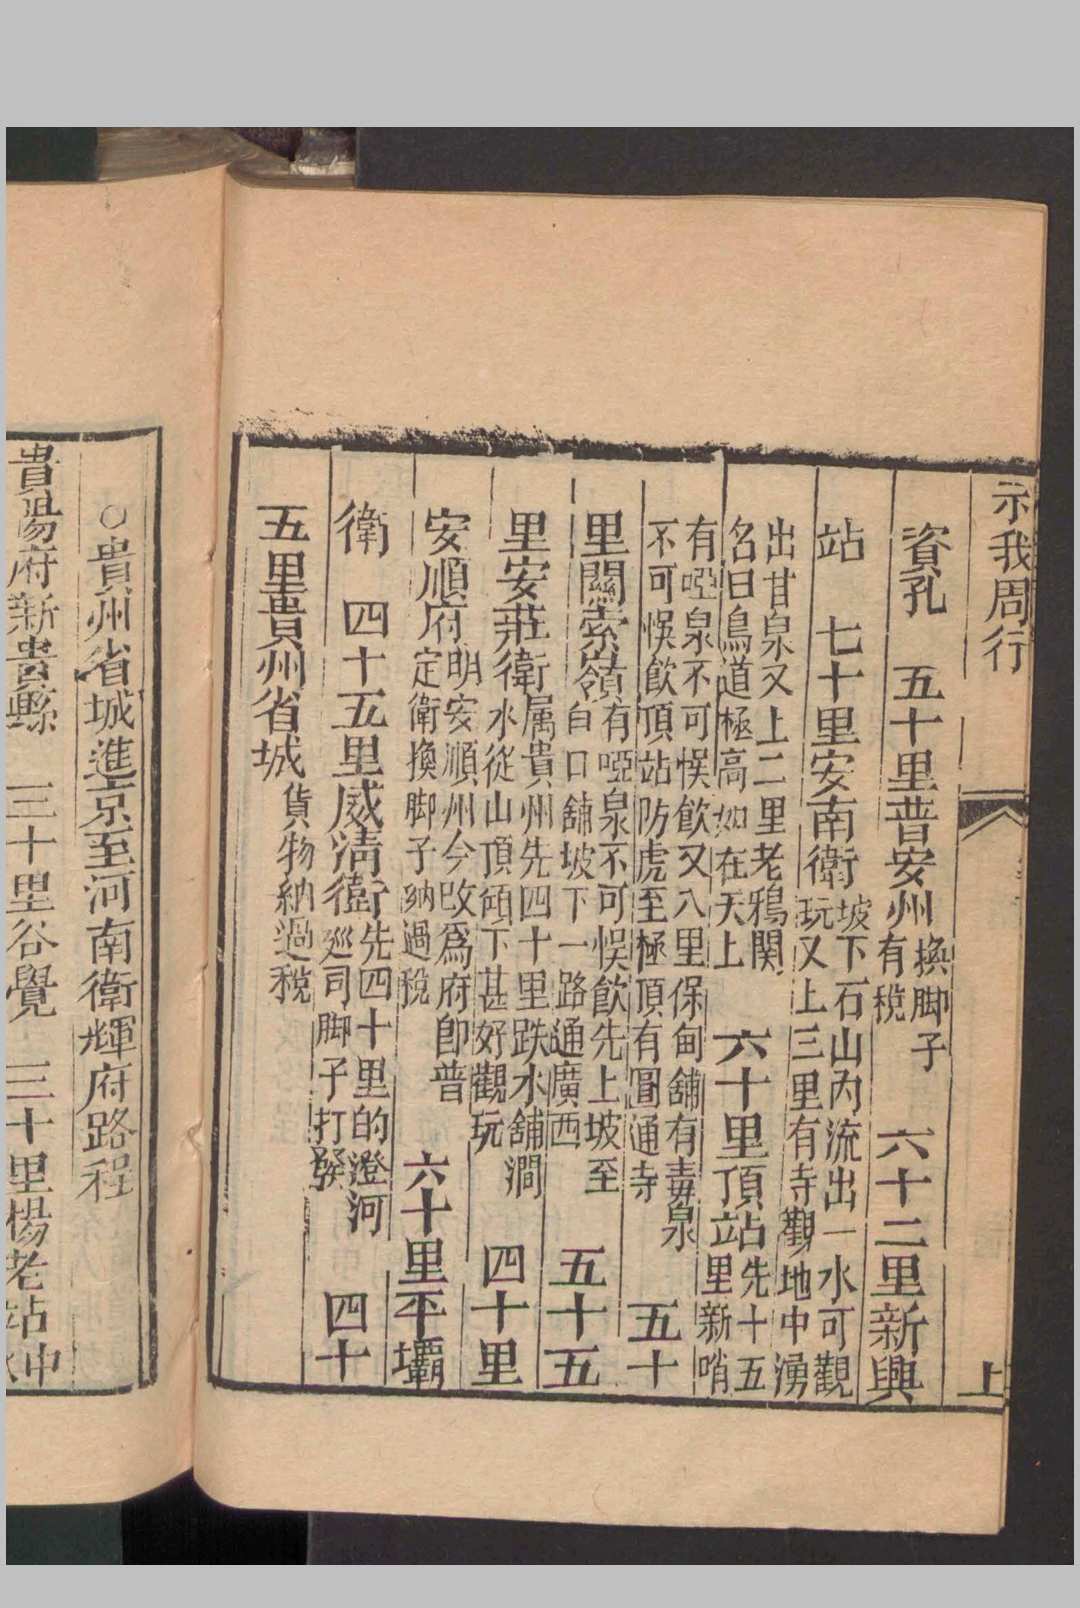 示我周行
上
資孔　五十里普安州換脚子有稅　六十二里新興
站　七十里安南衛坡下石山內流出一水可觀玩又上三里有寺觀地中湧
出甘泉又上二里老鴉關名曰鳥道極高如在天上　六十里頂站先十五里新哨
有啞泉不可悞飲又八里保甸舖有毒泉不可悞飲頂站防虎至極頂有圓通寺　五十
里關索嶺有啞泉不可悞飲先上坡至白口舖坡下一路通廣西　五十五
里安莊衛属貴州先四十里跌水舖澗水從山頂頒下甚好觀玩　四十里
安順府明安順州今改爲府卽普定衛換脚子納過稅　六十里平壩
衛　四十五里威清衛先四十里的澄河巡司脚子打發　四十
五里貴州省城貨物納過稅
○貴州省城進京至河南衛輝府路程
貴陽府新貴縣　三十里谷覺　三十里楊老站中